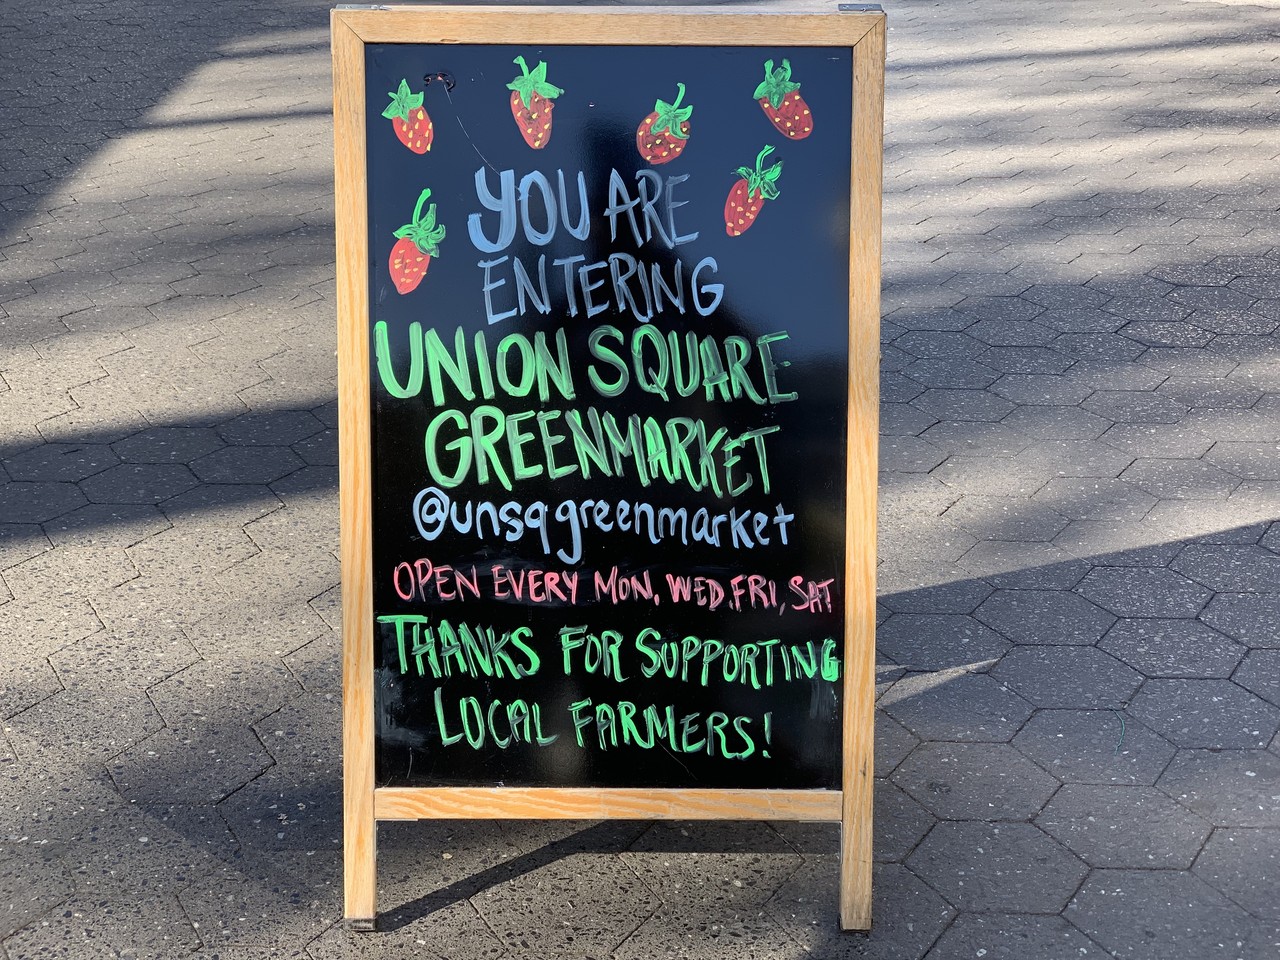 YOU ARE
ENTERING
UNION SQUARE
GREENMARKET
@unsqgreenmarket
OPEN EVERY MON. WED. FRI, SAT
THANKS FOR SUPPORTING
LOCAL FARMERS!